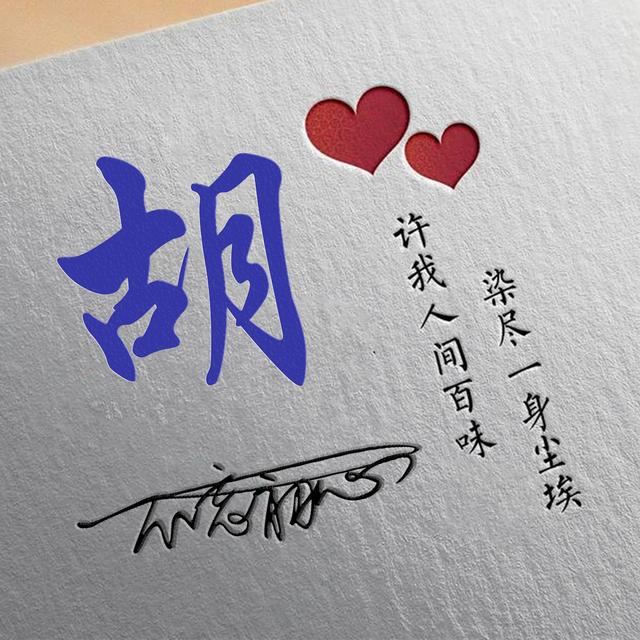 胡
许我人间百味
染尽一身尘埃